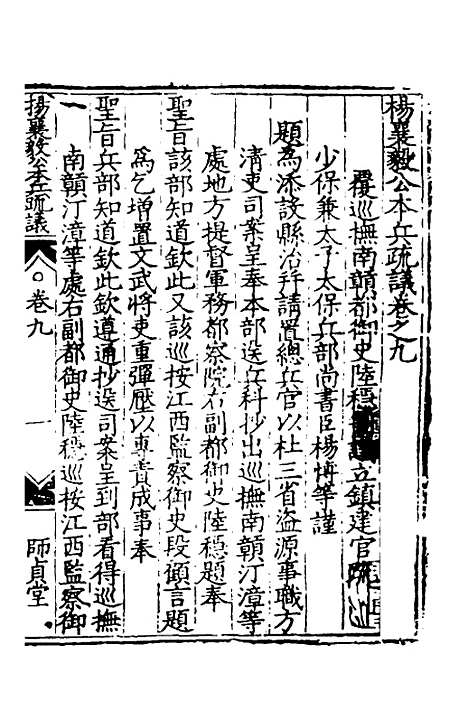 楊襄毅公本兵疏議卷之九
覆巡撫南贛都御史陸穩立鎮建官疏
少保兼太子太保兵部尚書臣楊博等謹
題為添設縣治并請置總兵官以杜三省盗源事職方
清吏司案呈奉本部送兵科抄出巡撫南贛汀漳等
處地方提督軍務都察院右副都御史陸穩題奉
聖旨該部知道欽此又該巡按江西監察御史段顧言題
為乞增置文武將吏重彈壓以專責成事奉
聖旨兵部知道欽此欽遵通抄送司案呈到部看得巡撫
南贛汀漳等處右副都御史陸穩巡按江西監察御
楊襄毅公本兵疏議
卷九
一
師貞堂